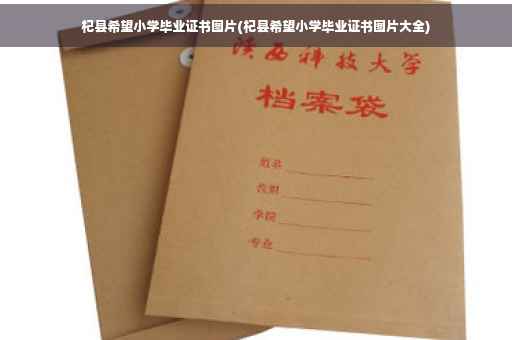 杞县希望小学毕业证书图片(杞县希望小学毕业证书图片大全)
陕西科技大学
档案袋
姓名
学院
专业